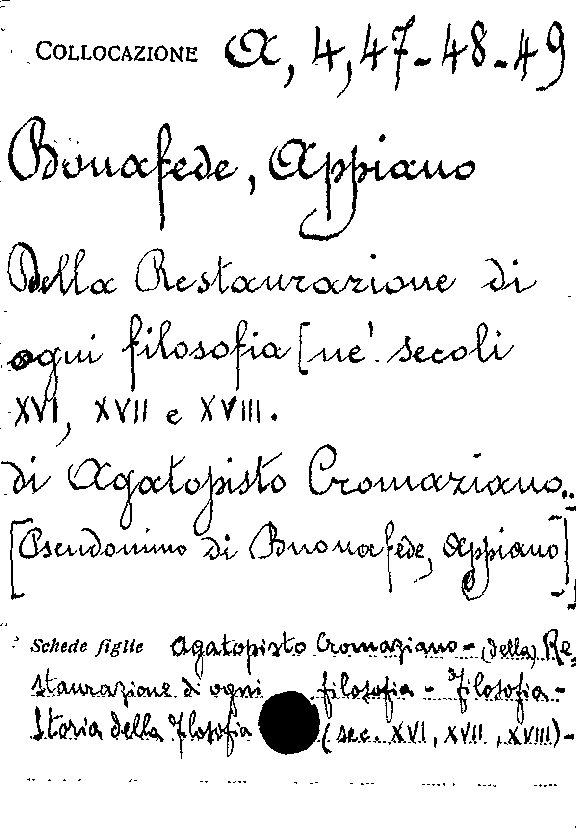 COLLOCAZIONE A, 4, 47-48-49
Bonafede, Appiano
Della Restaurazione di
ogni filosofia [ne' secoli
XVI, XVII e XVIII.
di Agatopisto Cromaziano..
[Pseudonimo di Buonafede, Appiano]
Schede figlie Agatopisto Cromaziano - (della) Re=
staurazione di ogni filosofia - Filosofia -
Storia della Filosofia (sec. XVI, XVII, XVIII) -